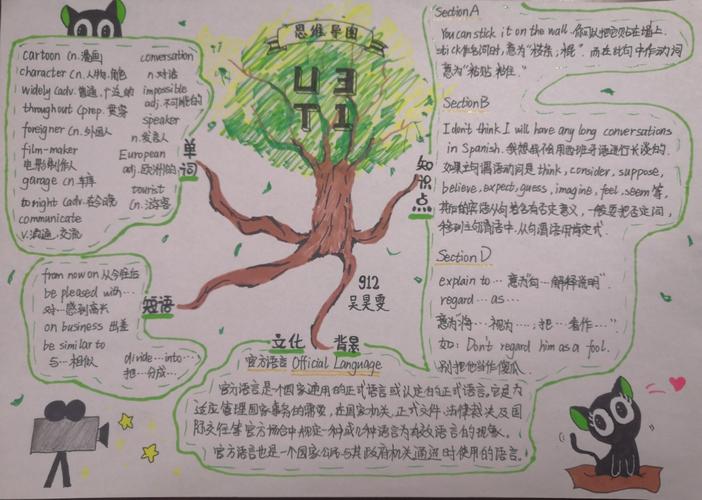 思维导图
U3
T1
单词
cartoon (n.漫画
character (n.人物.角色
widely (adv.普遍,广泛地
throughout (prep.贯穿
foreigner (n.外国人
film-maker
电影制作人
garage (n.车库
tonight (adv.在今晚
communicate
v.沟通.交流
conversation
n.对话
impossible
adj.不可能的
speaker
n.发言人
European
adj.欧洲的
tourist
(n.游客
短语
from now on 从今往后
be pleased with…
对…感到高兴
on business 出差
be similar to
与…相似
divide…into…
把…分成…
知识点
Section A
You can stick it on the wall.你可以把它贴在墙上.
stick作名词时,意为"棍."而在此句中作动词
意为"粘贴
Section B
I don't think I will have any long conversations
in Spanish.我想我不会用西班牙语进行长谈的.
如果主句谓语动词是think, consider, suppose,
believe, expect, guess, imagine, feel, seem等,
其后的宾语从句若含有否定意义,一般要把否定词
移到主句谓语中,从句谓语用肯定式.
Section D
explain to…意为"向…解释说明".
regard…as…
意为"将…视为…;把…看作…"
如: Don't regard him as a fool.
别把他当作傻瓜
912
文化背景
官方语言 Official Language
官方语言是一个国家通用的正式语言或认定的正式语言。它是为
适应管理国家事务的需要,在国家机关,正式文件,法律裁决及国
际交往等官方场合中规定一种或几种语言为有效语言的现象。
官方语言也是一个国家公民与其政府机关通话时使用的语言。